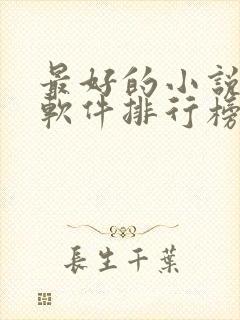 最好的小説
軟件排行榜
長生千葉